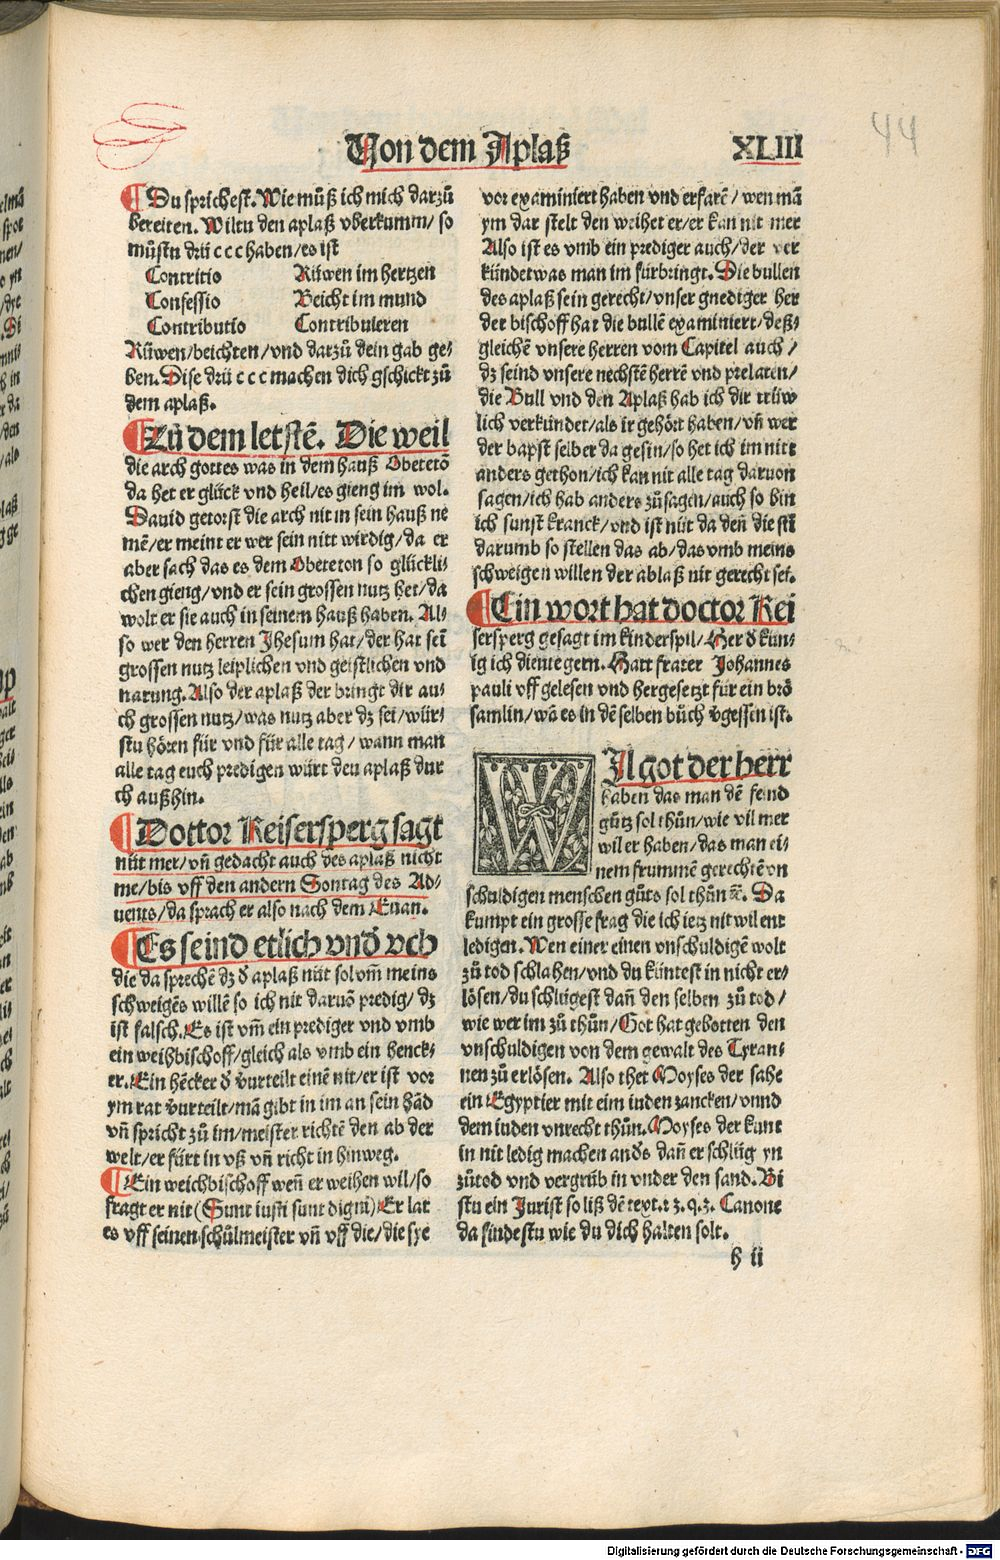 Von dem Aplaß
XLIII
44
¶ Du sprichest. Wie můß ich mich darzů
bereiten. Wiltu den aplaß vberkumm/ so
můstu drü c c c haben/es ist
Contritio Rüwen im hertzen
Confessio Beicht im mund
Contributio Contribuleren
Rüwen/beichten/vnd darzů dein gab ge⸗
ben. Dise drü c c c machen dich gschickt zů
dem aplaß.
¶ Zů dem letstē. Die weil
die arch gottes was in dem hauß Obetetō
da het er glück vnd heil/es gieng im wol.
Dauid getorst die arch nit in sein hauß ne
mē/er meint er wer sein nitt wirdig/da er
aber sach das es dem Obeteton so glückli⸗
chen gieng/vnd er sein grossen nutz het/da
wolt er sie auch in seinem hauß haben. Al⸗
so wer den herren Jhesum hat/der hat sei
grossen nutz leiplichen vnd geistlichen vnd
narung. Also der aplaß der bringt dir au⸗
ch grossen nutz/was nutz aber dz sei/wür⸗
stu hören für vnd für alle tag/wann man
alle tag euch predigen würt den aplaß dur
ch außhin.
¶ Dottor Keisersperg sagt
nüt mer/vñ gedacht auch des aplaß nicht
me/bis vff den andern Sontag des Ad⸗
uents/da sprach er also nach dem Euan.
¶ Es seind etlich vnd vch
die da sprechē dz d aplaß nüt sol vm̄ meins
schweigēs willē so ich nit daruō predig/dz
ist falsch. Es ist vm̄ ein prediger vnd vmb
ein weihbischoff/gleich als vmb ein henck⸗
er. Ein hēcker d vurteilt einē nit/er ist vor
ym rat vurteilt/mā gibt in im an sein hād
vñ spricht zů im/meister richtē den ab der
welt/er fürt in vß vñ richt in hinweg.
¶ Ein weichbischoff weñ er weihen wil/so
fragt er nit (Sunt iusti sunt digni) Er lat
es vff seinen schůlmeister vñ vff die/die sye
vor examiniert haben vnd erfarē/wen mā
ym dar stelt den weihet er/er kan nit mer
Also ist es vmb ein prediger auch/der ver
kündet was man im fürbringt. Die bullen
des aplaß sein gerecht/vnser gnediger her
der bischoff hat die bullē examiniert/deß⸗
gleichē vnsere herren vom Capitel auch/
dz seind vnsere nechstē herrē vnd prelaten/
die Bull vnd den Aplaß hab ich dir trüw
lich verkündet/als ir gehört haben/vñ wer
der bapst selber da gesin/so het ich im nitt
anders gethon/ich kan nit alle tag daruon
sagen/ich hab anders zů sagen/auch so bin
ich sunst kranck/vnd ist nüt da deñ die sti
darumb so stellen das ab/das vmb meins
schweigen willen der ablaß nit gerecht sei.
¶ Ein wort hat doctor Kei
sersperg gesagt im kinderspil/Her d kün⸗
ig ich diente gern. Hatt frater Johannes
pauli vff gelesen vnd hergesetzt für ein brö
samlin/wā es in dē selben bůch vgessen ist.
WIl got der herr
haben das man dē feind
gůtz sol thůn/wie vil mer
wil er haben/das man ei⸗
nem frummē gerechtē vn
schuldigen menschen gůts sol thůn ꝛc. Da
kumpt ein grosse frag die ich ietz nit wil ent
ledigen. Wen einer einen vnschuldigē wolt
zů tod schlahen/vnd du küntest in nicht er⸗
lösen/du schlügest dañ den selben zů tod/
wie wer im zů thůn/Got hat gebotten den
vnschuldigen von dem gewalt des Tyran⸗
nen zů erlösen. Also thet Moyses der sahe
ein Egyptier mit eim iuden zancken/vnnd
dem iuden vnrecht thůn. Moyses der kunt
in nit ledig machen anđs dañ er schlüg yn
zů tod vnd vergrůb in vnder den sand. Bi
stu ein Jurist so liß dē text. 23. q. 3. Canone
da findestu wie du dich halten solt.
h ii
Digitalisierung gefördert durch die Deutsche Forschungsgemeinschaft - DFG